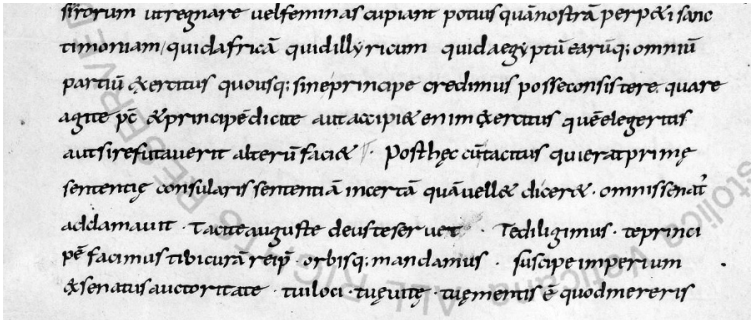 ssrorum ut regnare vel feminas cupiant potius quā nostrā perpeti sanc
timoniam quid africā quid illyricum quid aegyptū earūq; omniū
partiū exercitus quousq; sine principe credimus posse consistere quare
agite p̄c̄ & principē dicite aut accipi& enim exercitus quē elegeritis
aut si refutaverit alterū faci& · Post hęc cū tacitus qui erat primę
sententię consularis sententiā incertā quā vell& dicer& · omnis senat᷒
adclamavit · Tacite auguste deus te servet · Te diligimus · te princi
pē facimus tibi curā reip̄ · orbisq; mandamus · suscipe imperium
& senatus auctoritate · tui loci · tuę vitę · tuę mentis ē quod mereris
ALL RIGHTS RESERVED